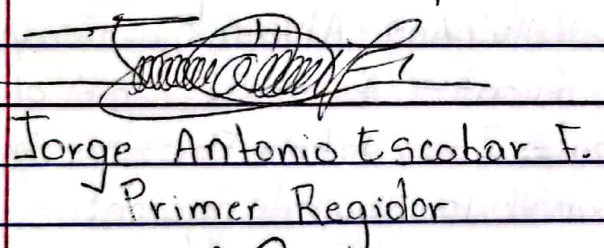 Jorge Antonio Escobar F.
Primer Regidor